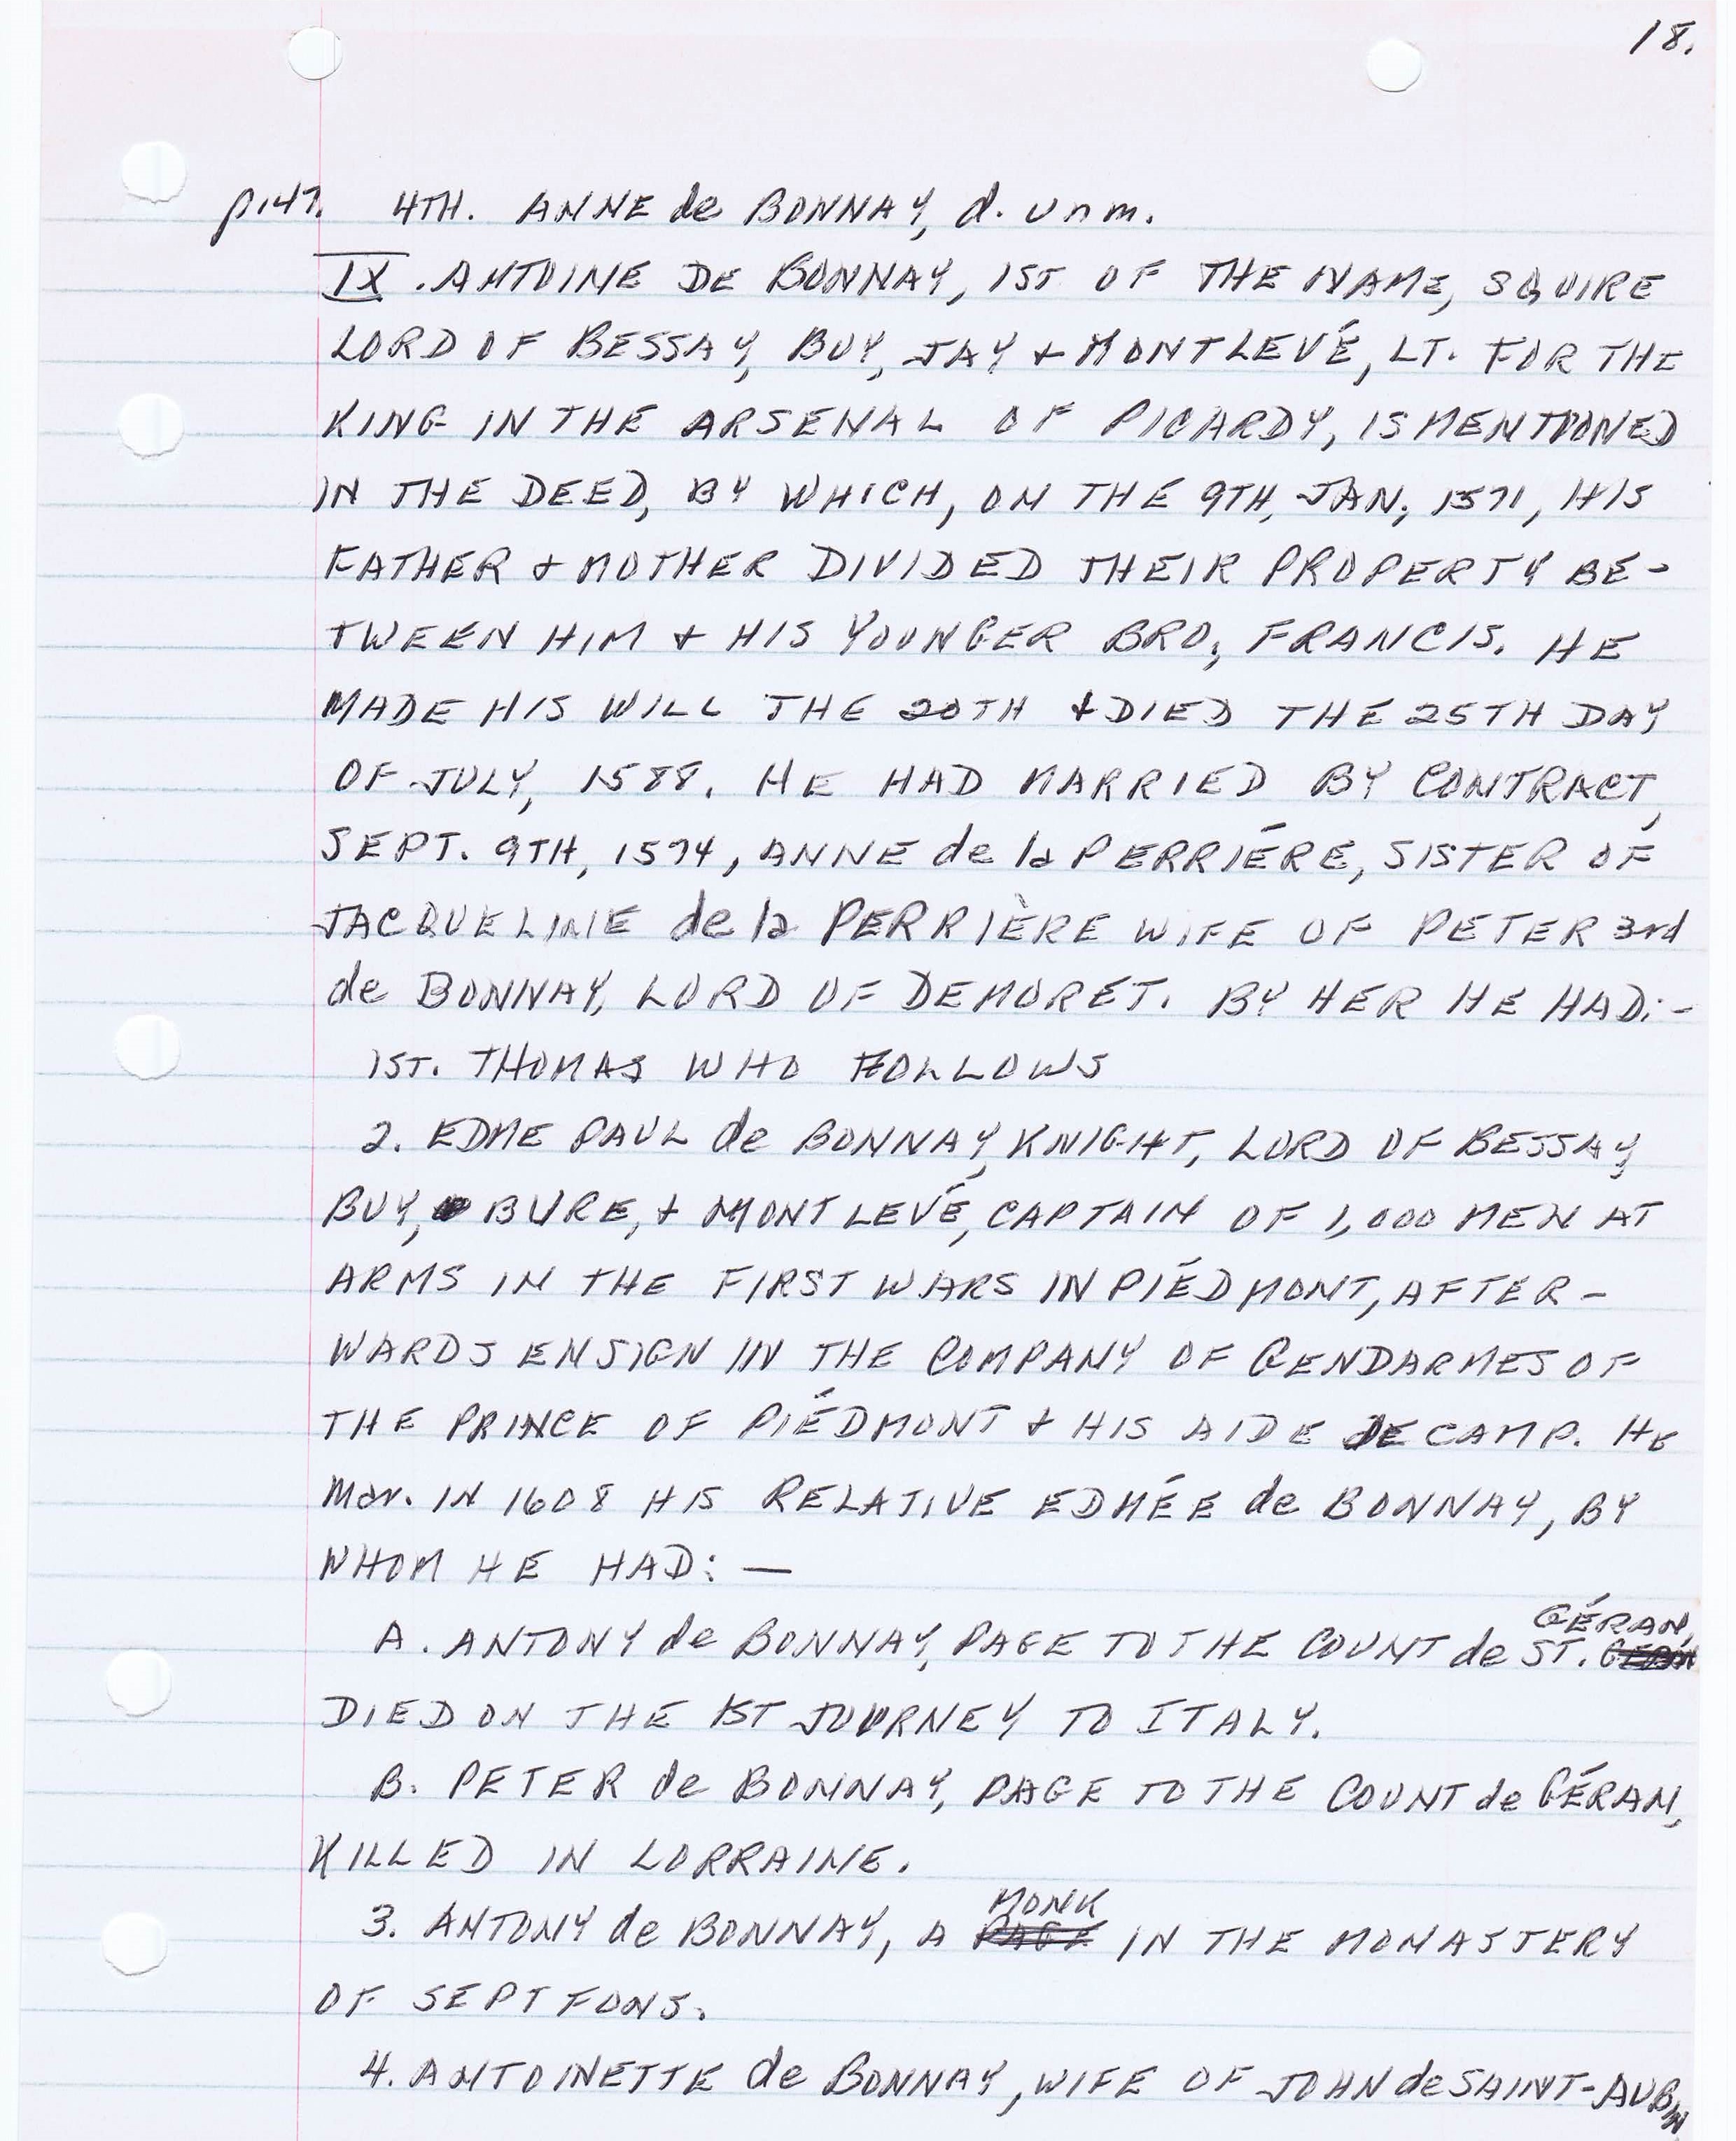 18.
p.47. 4TH. ANNE de BONNAY, d. unm.
IX. ANTOINE DE BONNAY, 1ST OF THE NAME, SQUIRE
LORD OF BESSAY, BUY, JAY & MONTLEVÉ, LT. FOR THE
KING IN THE ARSENAL OF PICARDY, IS MENTIONED
IN THE DEED, BY WHICH, ON THE 9TH, JAN, 1571, HIS
FATHER & MOTHER DIVIDED THEIR PROPERTY BE-
TWEEN HIM & HIS YOUNGER BRO, FRANCIS. HE
MADE HIS WILL THE 20TH & DIED THE 25TH DAY
OF JULY, 1588. HE HAD MARRIED BY CONTRACT,
SEPT. 9TH, 1574, ANNE de la PERRIÉRE, SISTER OF
JACQUELINE de la PERRIÈRE WIFE OF PETER 3rd
de BONNAY, LORD OF DEMORET. BY HER HE HAD:-
1ST. THOMAS WHO FOLLOWS
2. EDME PAUL de BONNAY, KNIGHT, LORD OF BESSAY,
BUY, BURE, & MONTLEVÉ, CAPTAIN OF 1,000 MEN AT
ARMS IN THE FIRST WARS IN PIÉDMONT, AFTER-
WARDS ENSIGN IN THE COMPANY OF GENDARMES OF
THE PRINCE OF PIÉDMONT & HIS AIDE DE CAMP. HE
Mar. IN 1608 HIS RELATIVE EDMÉE de BONNAY, BY
WHOM HE HAD: —
A. ANTONY de BONNAY, PAGE TO THE COUNT de ST. GÉRAN,
DIED ON THE 1ST JOURNEY TO ITALY.
B. PETER de BONNAY, PAGE TO THE COUNT de GÉRAN,
KILLED IN LORRAINE.
3. ANTONY de BONNAY, A MONK IN THE MONASTERY
OF SEPT FONS.
4. ANTOINETTE de BONNAY, WIFE OF JOHN de SAINT-AUBIN